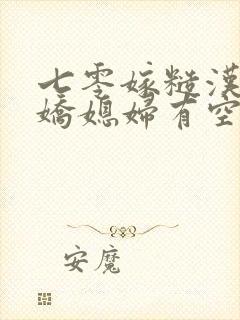 七零嫁糙漢
嬌媳婦有空
安魔